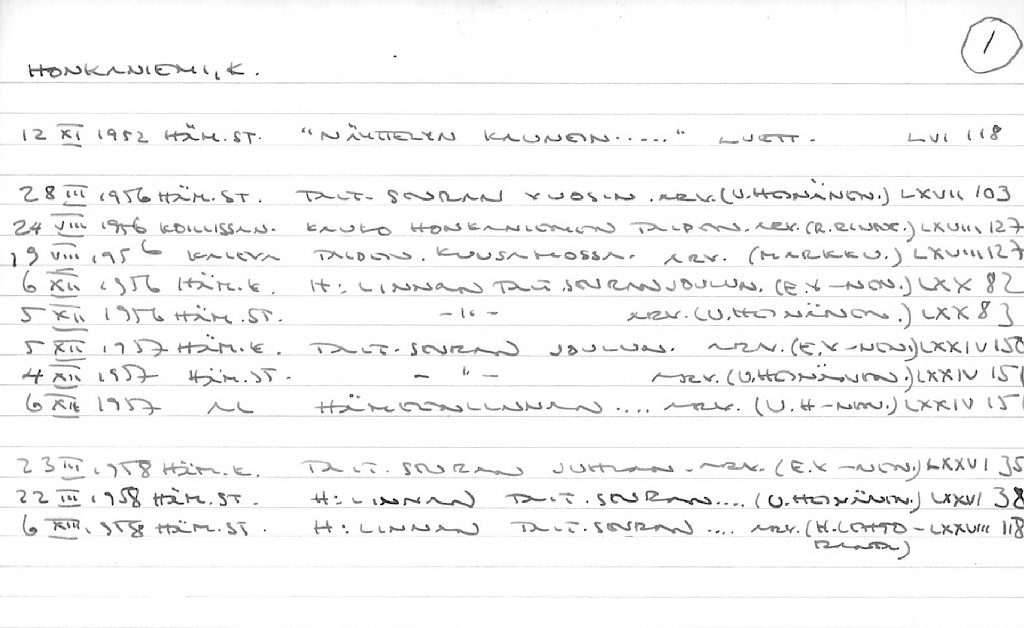 1
HONKANIEMI, K.
12 XI 1952 HÄM.ST. "NÄYTTELYN KAUNEIN....." LUETT. LVI 118
28 III 1956 HÄM.ST. TAIT. SEURAN VUOSIN. ARV. (U.HEINÄNEN.) LXVII 103
24 VIII 1956 KOILLISSAN. KAUKO HONKANIEMEN TAIDEN. ARV. (R.RUNK.) LXVIII 127
19 VIII 1956 KALEVA TAIDEN. KUUSAMOSSA. ARV. (MARKKU.) LXVIII 127
6 XII 1956 HÄM.K. H:LINNAN TAIT.SEURAN JOULUN. (E.V-NEN.) LXX 82
5 XII 1956 HÄM.ST. -"- ARV. (U.HEINÄNEN.) LXX 83
5 XII 1957 HÄM.K. TAIT. SEURAN JOULUN. ARV. (E.V-NEN.) LXXIV 150
4 XII 1957 HÄM.ST. - " - ARV. (U.HEINÄNEN.) LXXIV 151
6 XII 1957 AL HÄMEENLINNAN .... ARV. (U.H-NEN.) LXXIV 151
23 III 1958 HÄM.K. TAIT. SEURAN JUHLAN. ARV. (E.V-NEN.) LXXVI 35
22 III 1958 HÄM.ST. H:LINNAN TAIT.SEURAN.... (U.HEINÄNEN.) LXXVI 38
6 XII 1958 HÄM.ST. H:LINNAN TAIT.SEURAN .... ARV. (H.LEHTO- LXXVIII 118